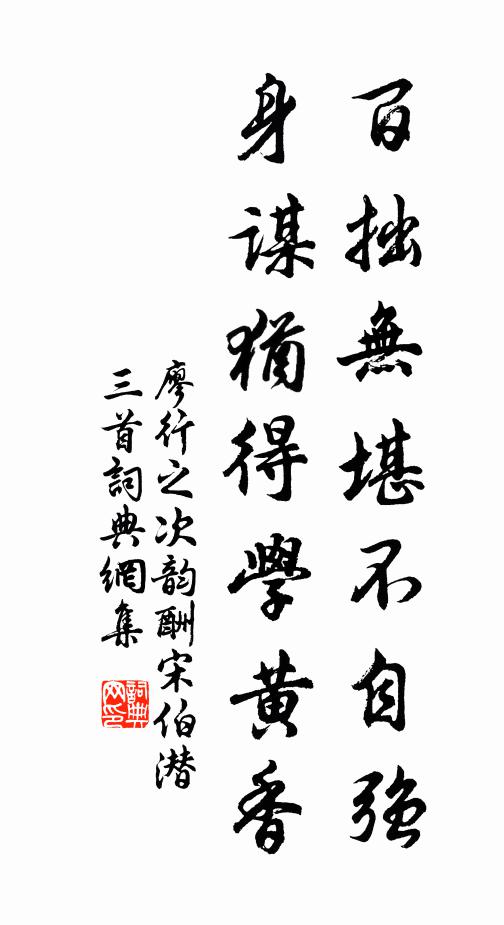 百拙無堪不自强
身謀猶得學黄香
廖行之次韵酬宋伯潜
三首詞典網集
詞典网印